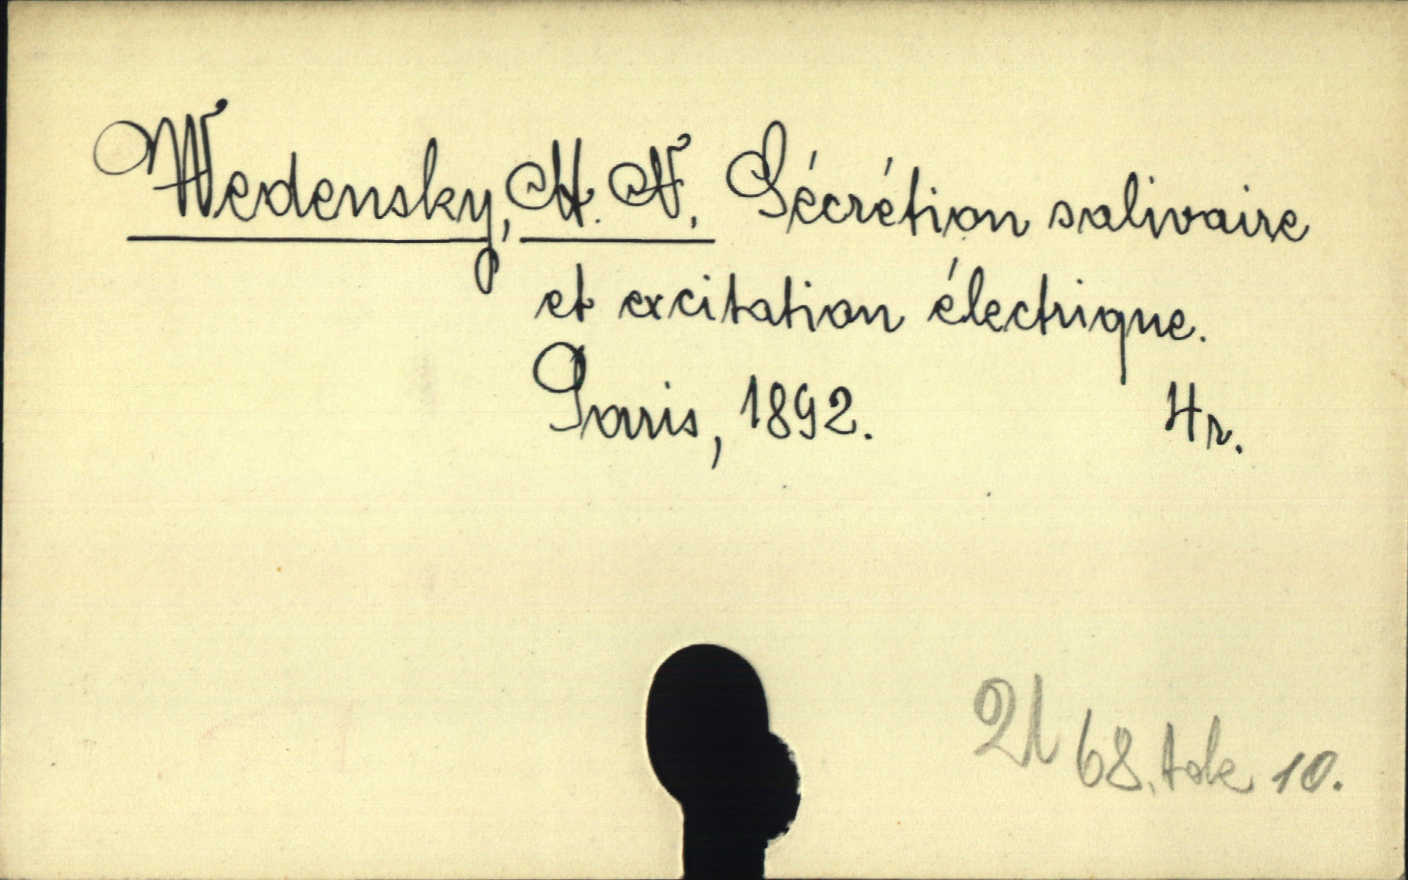 Wedensky, M. N. Sécrétion salivaire
et excitation électrique.
Paris, 1892. 4r.
68. tok 10.